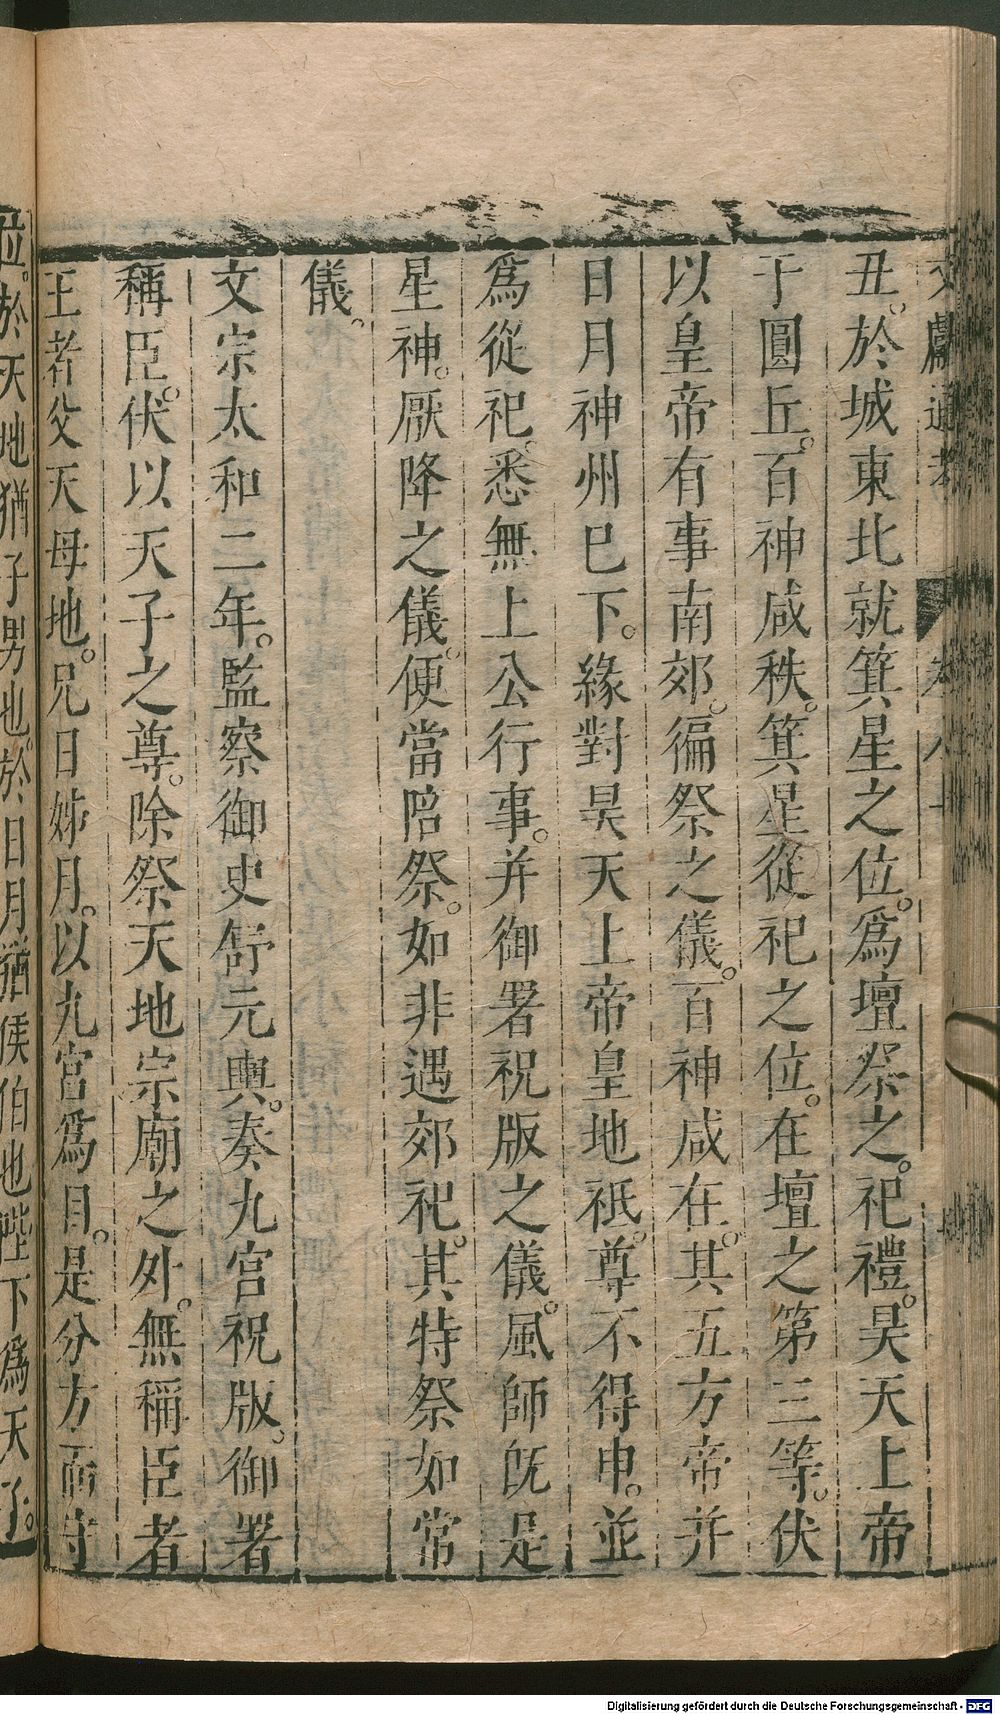 文獻通考 卷八十
丑。於城東北就箕星之位。爲壇祭之。祀禮。昊天上帝
于圓丘。百神咸秩。箕星從祀之位。在壇之第三等。伏
以皇帝有事南郊。徧祭之儀。百神咸在。其五方帝并
日月神州已下。緣對昊天上帝皇地祇。尊不得申。並
爲從祀。悉無上公行事。并御署祝版之儀。風師旣是
星神。厭降之儀。便當陪祭。如非遇郊祀。其特祭如常
儀。
文宗太和二年。監察御史舒元輿。奏九宮祝版。御署
稱臣。伏以天子之尊。除祭天地宗廟之外。無稱臣者
王者父天母地。兄日姊月。以九宮爲目。是分方而守
位。於天地猶子男也。於日月猶侯伯也陛下爲天子。
Digitalisierung gefördert durch die Deutsche Forschungsgemeinschaft - DFG